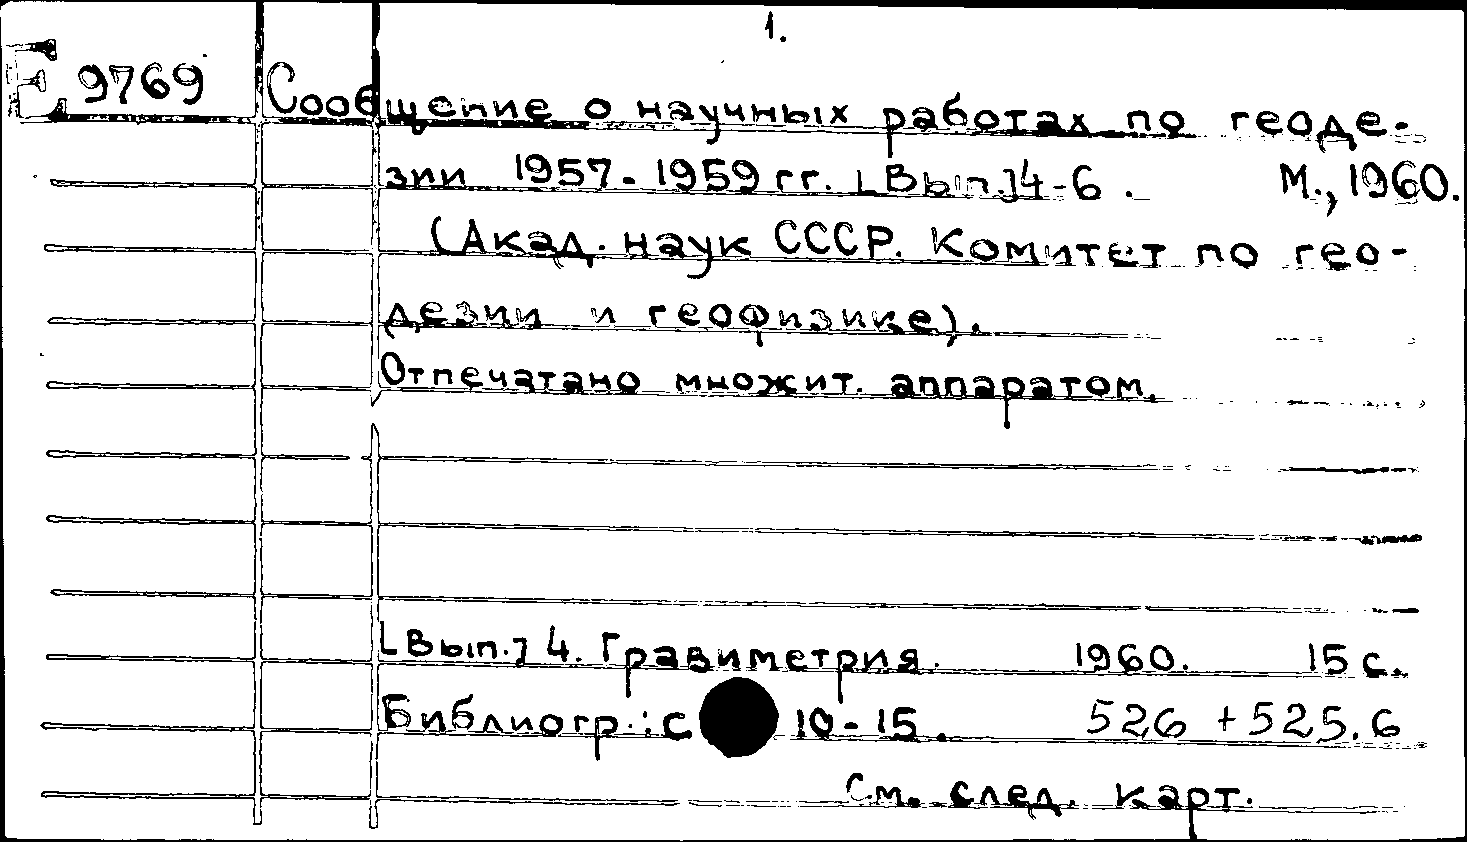 1.
E 9769 Сообщение о научных работах по геоде-
зии 1957-1959 гг. [Вып.] 4-6. М., 1960.
(Акад. наук СССР. Комитет по гео-
дезии и геофизике).
Отпечатано множит. аппаратом.
[Вып.] 4. Гравиметрия. 1960. 15 с.
Библиогр.: с 10-15. 526 + 525.6
См. след. карт.